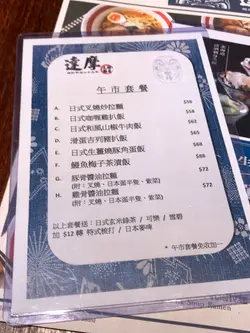 達摩
午市套餐
A. 日式叉燒炒拉麵 $58
B. 日式咖喱雞扒飯 $62
C. 日式和風山椒牛肉飯 $62
D. 滑蛋吉列豬扒飯 $65
E. 日式生薑燒豚角蛋飯 $68
F. 鰻魚梅子茶漬飯 $72
G. 豚骨醬油拉麵 $72
(附:叉燒、日本蛋半隻、紫菜)
H. 雞骨醬油拉麵 $72
(附:叉燒、日本蛋半隻、紫菜)
以上套餐送:日式玄米綠茶 / 可樂 / 雪碧
加 $12 轉 特式梳打 / 日本麥啤
* 午市套餐免收加一
Ramen